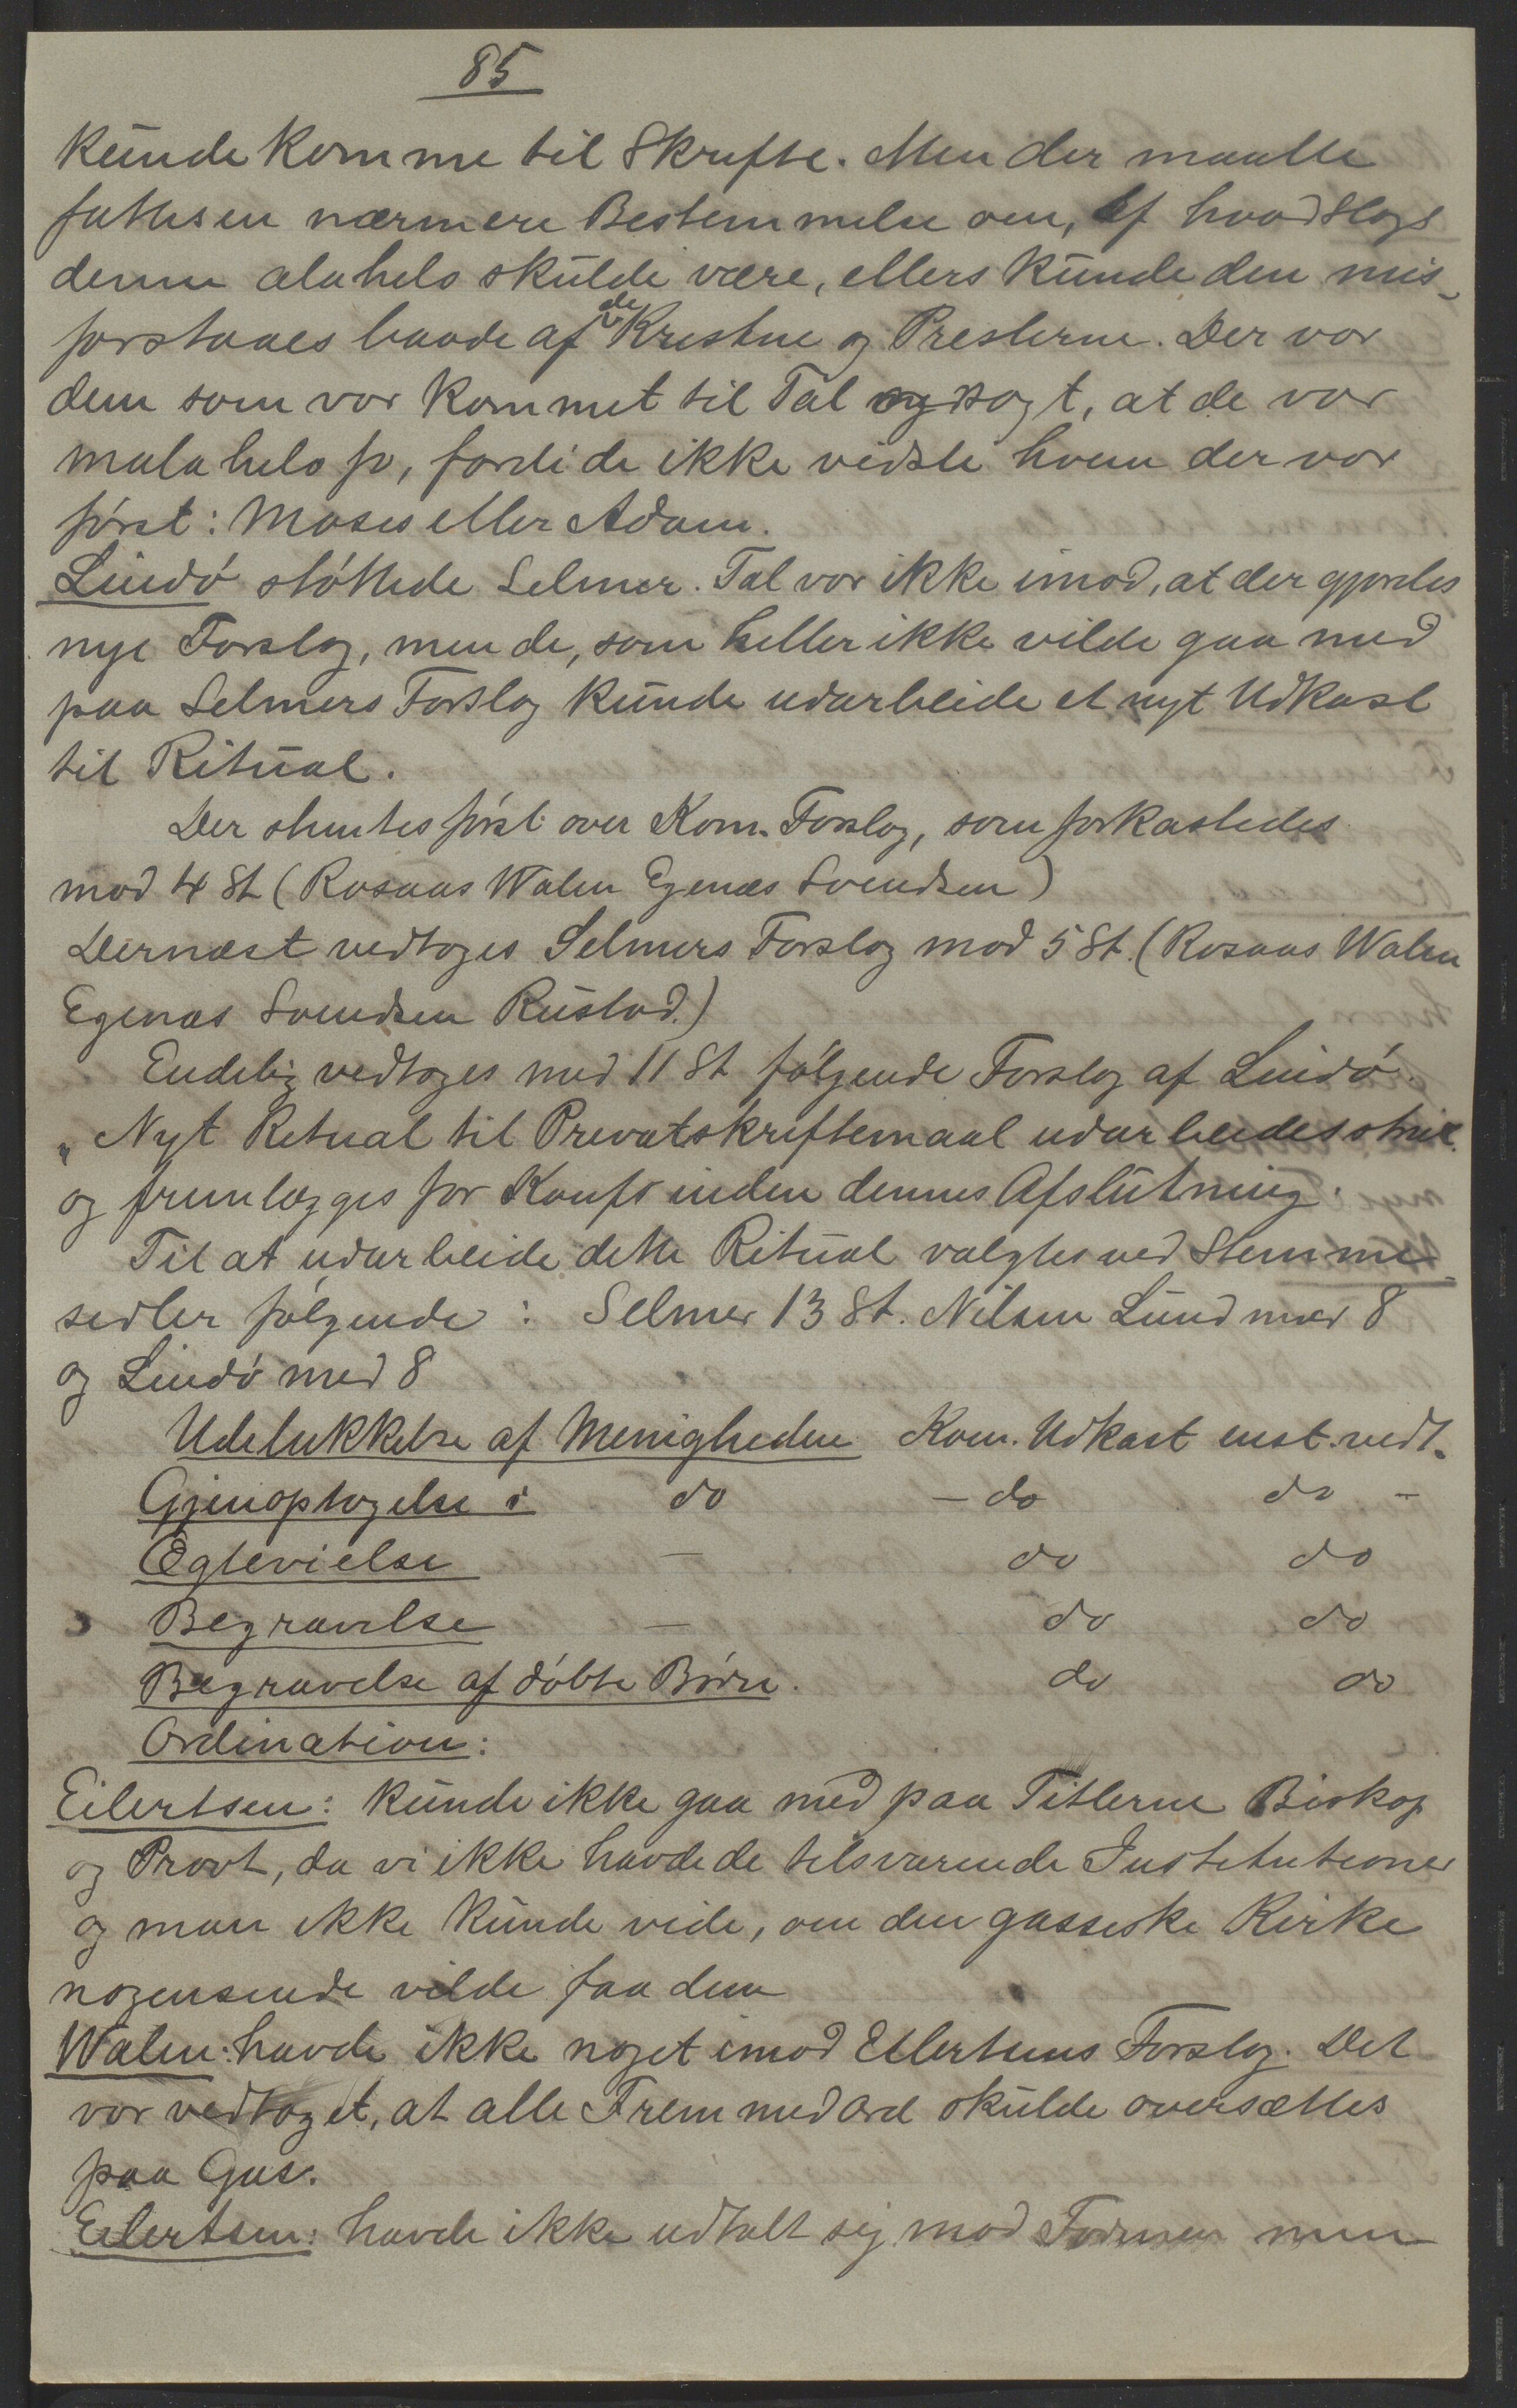 85
kunde komme til Skrifte. Men der maatte
fattes en nærmere Bestemmelse om, af hvad Slags
denne alahelo skulde være, ellers kunde den mis-
forstaaes baade af de Kristne og Presterne. Der var
dem som var kommet til Tal og sagt, at de var
malahelo fo, fordi de ikke vidste hvem der var
først: Moses eller Adam.
Lindö støttede Selmer. Tal var ikke imod, at der gjordes
nye Forslag, men de, som heller ikke vilde gaa med
paa Selmers Forslag kunde udarbeide et nyt Udkast
til Ritual.
Der stemtes først over Kom. Forslag, som forkastedes
mod 4 St (Rosaas Walen Egenæs Svendsen)
Dernæst vedtoges Selmers Forslag mod 5 St. (Rosaas Walen
Egenæs Svendsen Rustad.)
Endelig vedtoges med 11 St følgende Forslag af Lindö.
„Nyt Ritual til Privatskriftemaal udarbeides
og fremlægges for Konfr inden dennes Afslutning.
Til at udarbeide dette Ritual valgtes ved Stemme-
sedler følgende: Selmer 13 St. Nilsen Lund med 8
og Lindö med 8
Udelukkelse af Menigheden Kom. Udkast enst. vedt.
Gjenoptagelse i do - do do -
Ægtevielse - do do
Begravelse - do do
Begravelse af døbte Børn. do do
Ordination:
Eilertsen: kunde ikke gaa med paa Titlerne Biskop
og Provst, da vi ikke havde de tilsvarende Institutioner
og man ikke kunde vide, om den gassiske Kirke
nogensinde vilde faa dem
Walen: havde ikke noget imod Eilertsens Forslag. Det
var vedtaget, at alle Fremmedord skulde oversættes
paa Gas.
Eilertsen: havde ikke udtalt sig mod Formen men